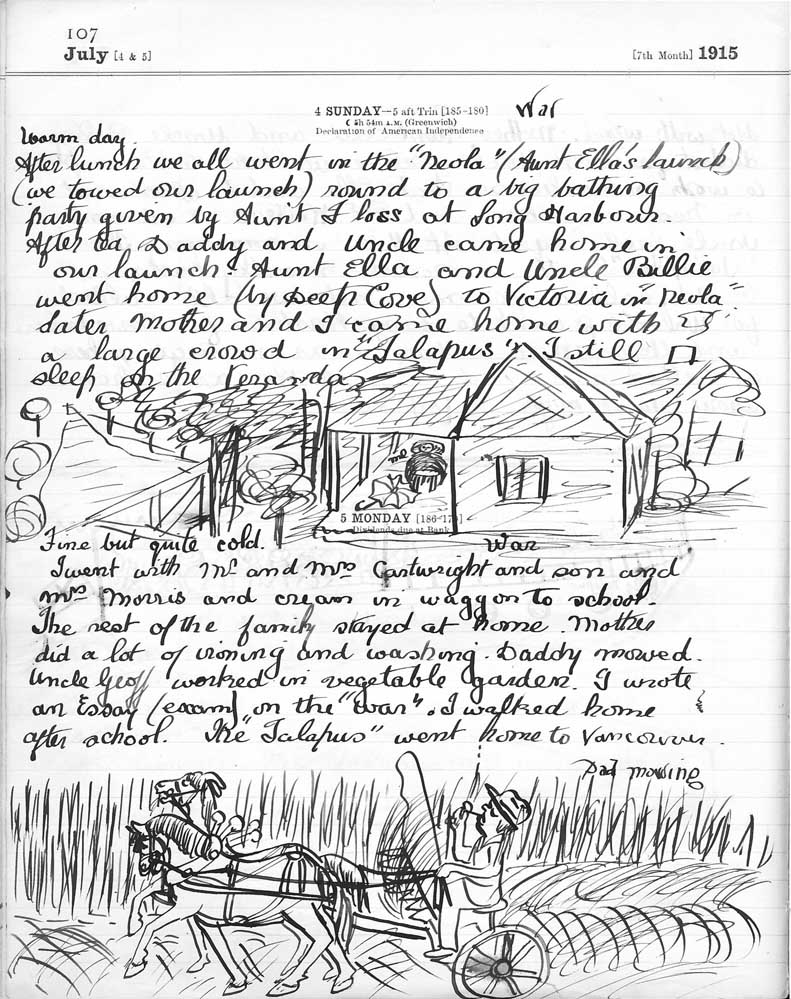 107
July [4 & 5] [7th Month] 1915
4 SUNDAY—5 aft Trin [185-180] War
☾ 5h 54m A.M. (Greenwich)
Declaration of American Independence
Warm day.
After lunch we all went in the "Neola" (Aunt Ella's launch)
(we towed our launch) round to a big bathing
party given by Aunt Floss at Long Harbour.
After tea Daddy and Uncle came home in
our launch. Aunt Ella and Uncle Billie
went home (by Deep Cove) to Victoria in "Neola"
Later Mother and I came home with
a large crowd in "Jalapus". I still
sleep on the Veranda
me
5 MONDAY [186-179]
Dividends due at Bank
Fine but quite cold. War
I went with Mr and Mrs Cartwright and son and
Mrs Morris and cream in waggon to school.
The rest of the family stayed at home. Mother
did a lot of ironing and washing. Daddy mowed.
Uncle Geoff worked in vegetable garden. I wrote
an Essay (exam) on the "War". I walked home
after school. The "Jalapus" went home to Vancouver.
Dad mowing